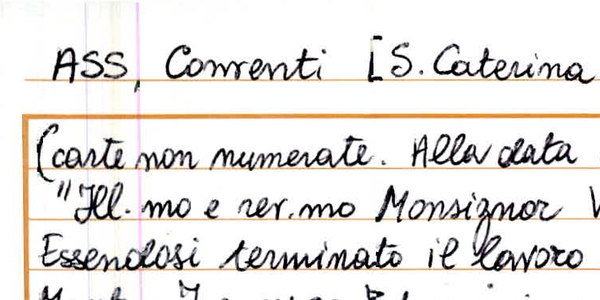 ASS, Conventi [S. Caterina
(carte non numerate. Alla data
"Ill.mo e rev.mo Monsignor V
Essendosi terminato il lavoro